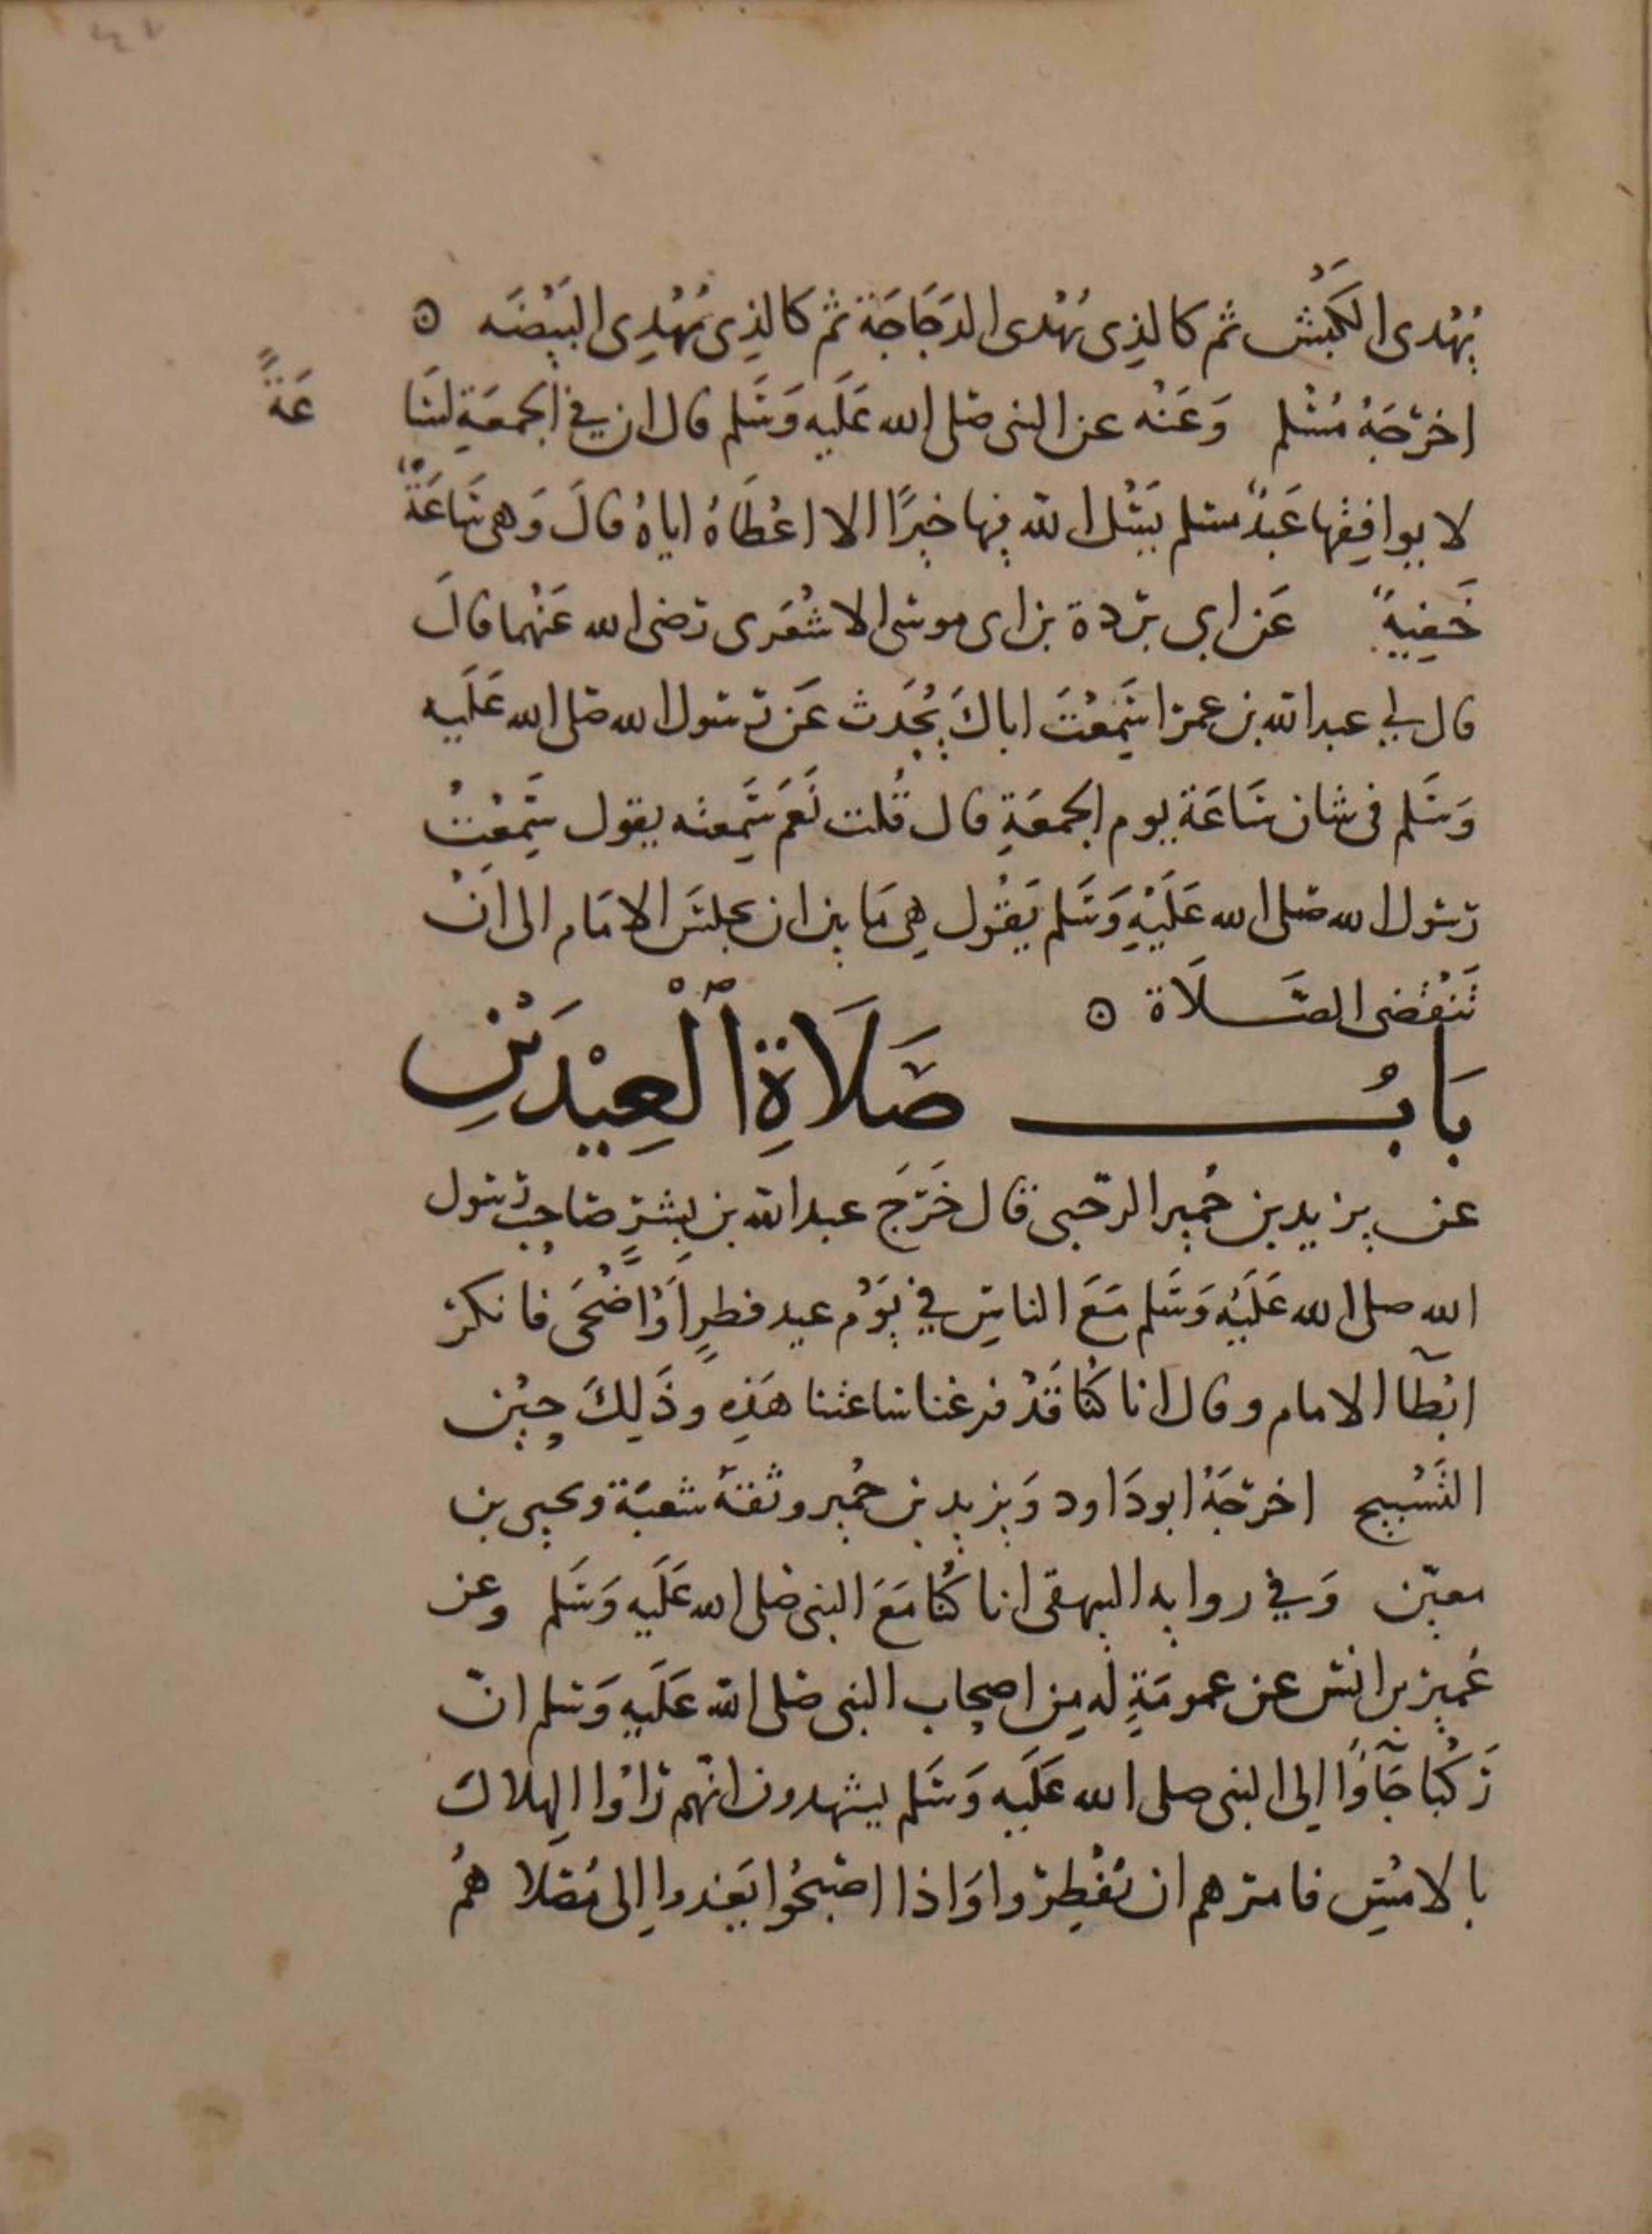 يُهْدى الكَبْش ثم كالذِى يُهْدى الدَجَاجَة ثم كالذِى يُهْدِى البَيْضَه ۞
اخرَجَهُ مُسْلم وَعَنْه عن النبى صَلى الله عَلَيه وَسَلم قال ان فِي الجمعَةِ لسَا عَةً
لا يوافِقها عَبْدٌ مسلم يَسْئل الله فِيها خيرًا الا اعْطَاهُ اياهُ قالَ وَهى سَاعَةٌ
خَفِيفةٌ عَن ابي بردة بن ابى موسَى الاشْعَرى رَضى الله عَنْهما قالَ
قال لِي عبد الله بن عمر اسَمِعْتَ اباكَ يُحَدث عَن رَسول الله صَلى الله عَلَيه
وَسَلم فى شان سَاعَة يوم الجمعَةِ قال قُلت نَعَم سَمِعته يقول سَمِعْتُ
رَسول الله صَلى الله عَلَيْهِ وَسَلم يَقُول هِىَ مَا بين ان يجلسَ الامَام الى انْ
تَنْقضى الصَّلَاة ۞
بَابُ صَلَاةِ الْعِيْدَيْنِ
عن يزيد بن خُمير الرحَبى قال خَرَجَ عبد الله بن بِسْرٍ صَاحِب رَسول
الله صلى الله عَلَيْهِ وَسَلم مَعَ الناسِ فِي يَوْم عيد فطرٍ اَوْ اَضْحَى فانكر
ابْطآ الامام وقال انا كُنا قَدْ فرغنا ساعتنا هَذِهِ وذَلِكَ حِيْن
التَسْبيح اخرجَهُ ابو دَاود وَيزيد بن خُمير وثقهُ شعبَة ويحيى بن
معين وَفي روايه البيهقى انا كُنا مَعَ النبى صَلى الله عَلَيه وَسَلم وعن
عُمير بن انس عن عمومَةٍ له مِن اصحاب النبى صَلى الله عَلَيهِ وَسلم انّ
رَكْبًا جَآؤا الى النبى صلى الله عَلَيه وَسَلم يشهدون انهم رَاوْا الهِلال
بالامْسِ فامرهم ان يُفْطِروا وَاذا اصْبَحُوا يَغدوا اِلى مُصَلاهُمْ